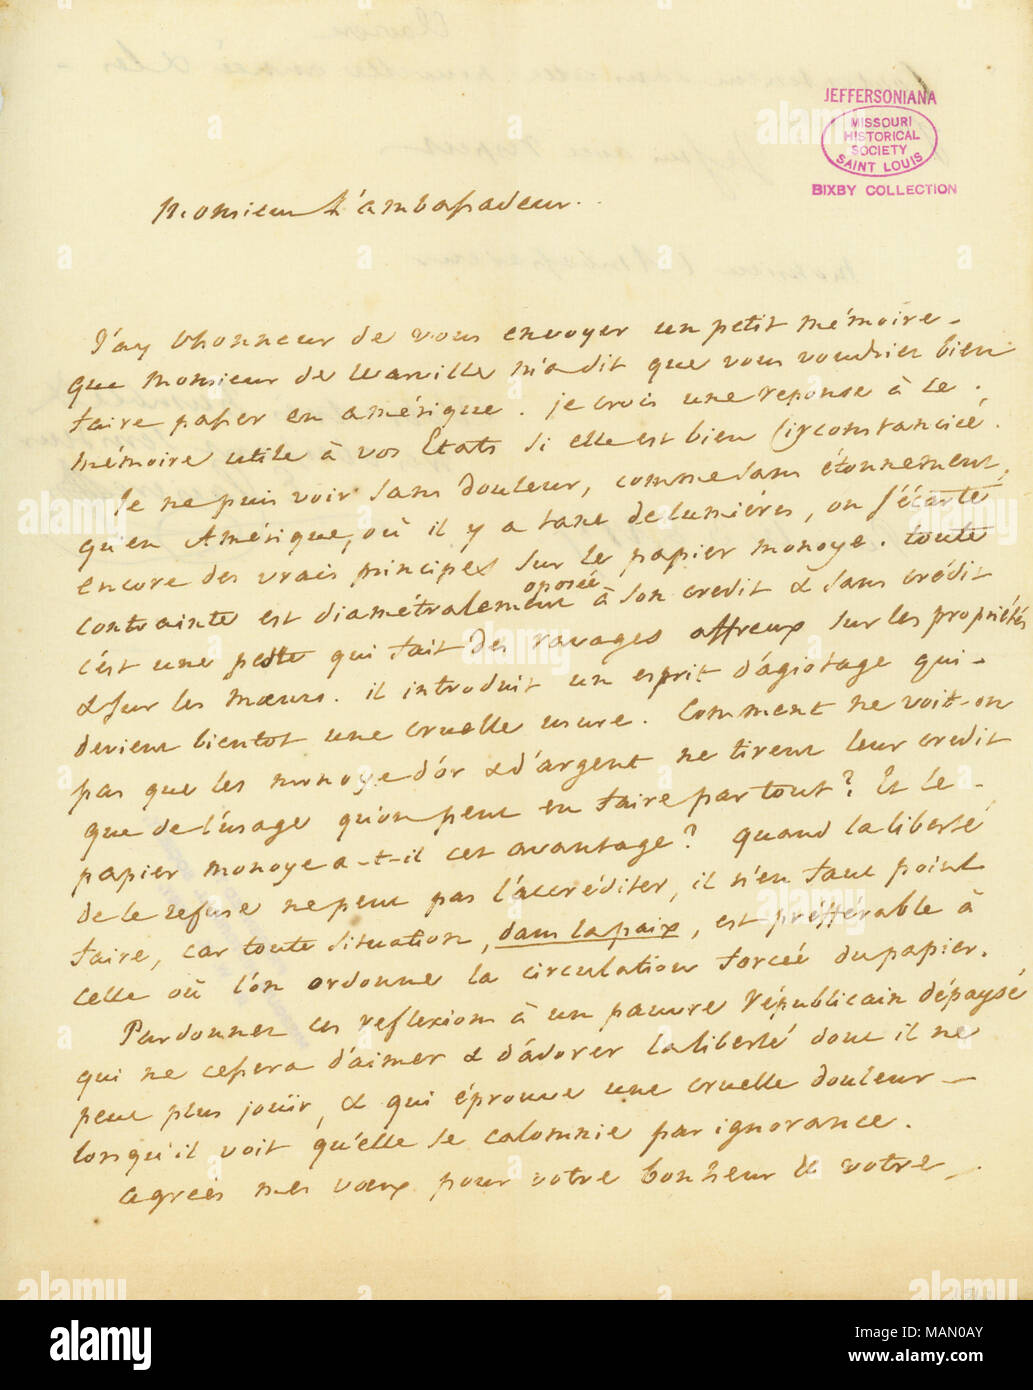 JEFFERSONIANA
MISSOURI
HISTORICAL
SOCIETY
SAINT LOUIS
BIXBY COLLECTION
Monsieur L'ambassadeur.
J'ay l'honneur de vous envoyer un petit mémoire
que monsieur de Warville m'a dit que vous voudriez bien
faire passer en amérique. je crois une reponse à ce
mémoire utile à vos Etats si elle est bien circonstanciée.
Je ne puis voir sans douleur, comme sans étonnement,
qu'en Amérique, où il y a tant de lumiéres, on s'écarte
encore des vrais principes sur le papier monoye. toute
contrainte est diamétralement oposée à son credit & sans crédit
c'est une peste qui fait des ravages affreux sur les propriétés
& sur les mœurs. il introduit un esprit d'agiotage qui
devient bientot une cruelle usure. Comment ne voit-on
pas que les monoye d'or & d'argent ne tirent leur credit
que de l'usage qu'on peut en faire par tout? Et le
papier monoye a-t-il cet avantage? quand la liberté
de le refuse ne peut pas l'accréditer, il n'en faut point
faire, car toute situation, dans la paix, est préfférable à
celle où l'on ordonne la circulation forceé du papier.
Pardonnez ces reflexions à un pauvre républicain dépaysé
qui ne cessera d'aimer & d'adorer la liberté dont il ne
peut plus jouïr, & qui éprouve une cruelle douleur
lorsqu'il voit qu'elle se calomnie par ignorance.
agreés mes vœux pour votre bonheur & votre
alamy
www.alamy.com
Image ID: MAN0AY